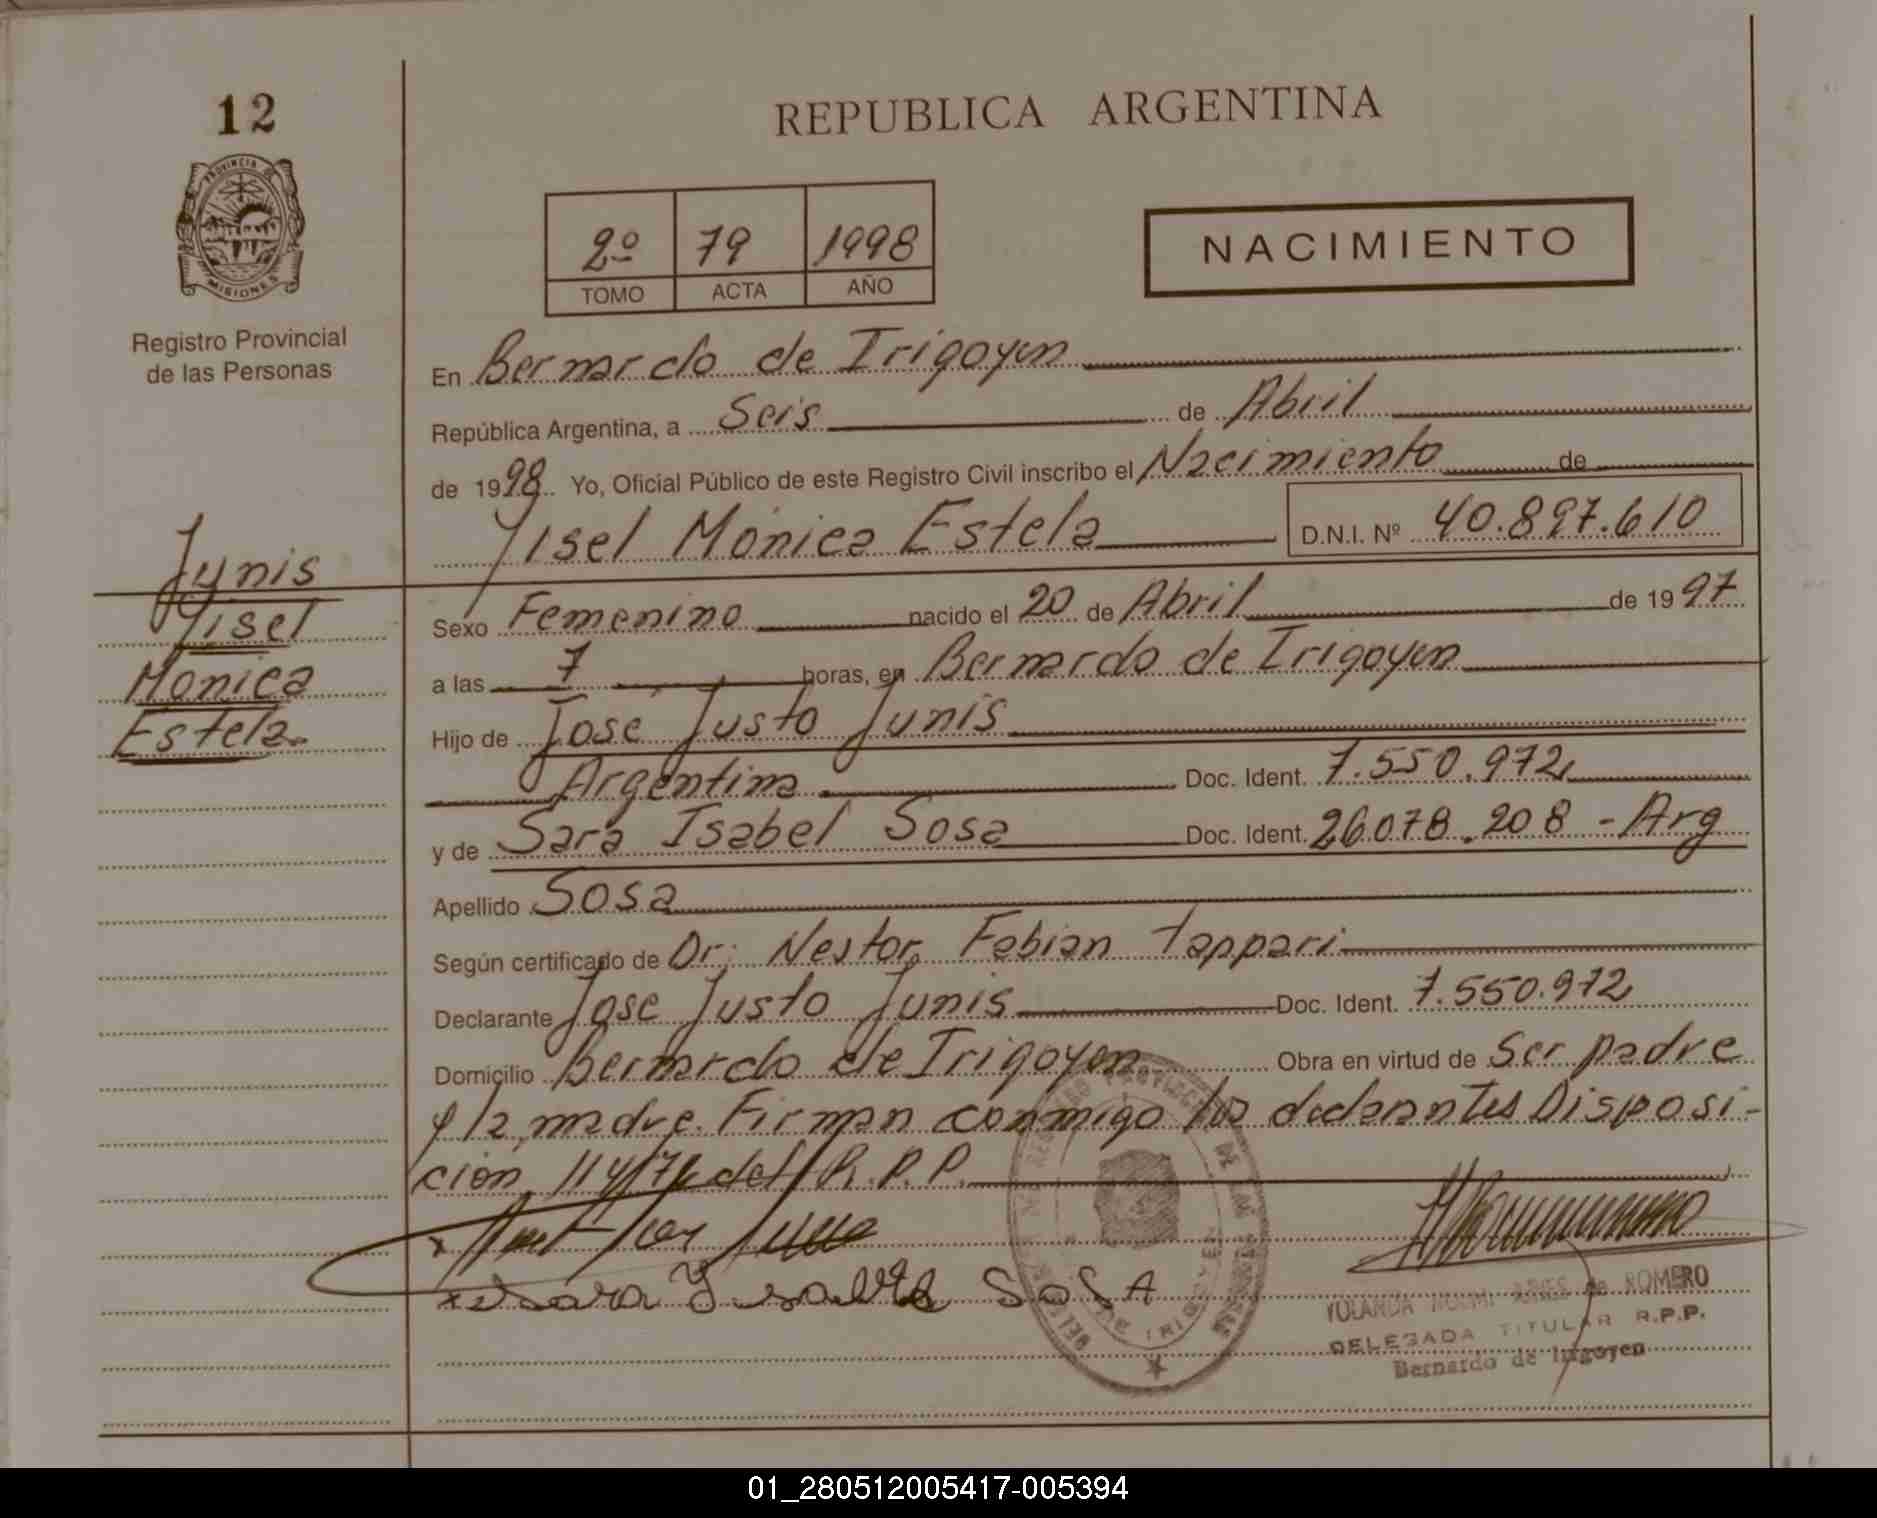 12
PROVINCIA DE
MISIONES
Registro Provincial
de las Personas
Junis
Yisel
Monica
Estela.
REPUBLICA ARGENTINA
2º 79 1998
TOMO ACTA AÑO
NACIMIENTO
En Bernardo de Irigoyen
República Argentina, a Seis de Abril
de 1998. Yo, Oficial Público de este Registro Civil inscribo el Nacimiento de
Yisel Mónica Estela D.N.I. Nº 40.897.610
Sexo Femenino nacido el 20 de Abril de 1997
a las 7 horas, en Bernardo de Irigoyen
Hijo de José Justo Junis
Argentina Doc. Ident. 7.550.972
y de Sara Isabel Sosa Doc. Ident. 26.078.208 - Arg
Apellido Sosa
Según certificado de Dr. Nestor Fabian Tappari
Declarante Jose Justo Junis Doc. Ident. 7.550.972
Domicilio Bernardo de Irigoyen Obra en virtud de Ser padre
y la madre. Firman conmigo los declarantes Disposi-
ción 114/76 del R.P.P.
Sara Ysabel SoSA
YOLANDA de ROMERO
DELEGADA TITULAR R.P.P.
Bernardo de Irigoyen
01_280512005417-005394